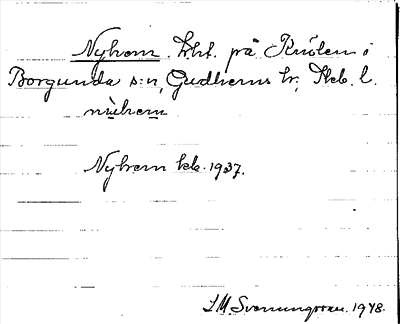 Nyhem. Lht. på Knölen i
Borgunda s:n, Gudhems hr, Skb. l.
nỳhem
Nyhem kb. 1937.
I. M. Svenningsson. 1948.